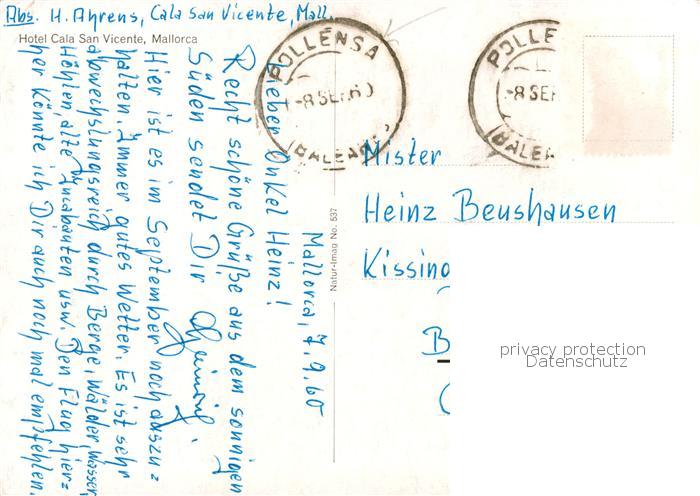 Abs. H. Ahrens, Cala San Vicente, Mall.
Hotel Cala San Vicente, Mallorca
Mallorca, 7.9.60
Lieber Onkel Heinz!
Recht schöne Grüße aus dem sonnigen
Süden sendet Dir
Hier ist es im September noch auszu=
halten. Immer gutes Wetter. Es ist sehr
abwechslungsreich durch Berge, Wälder, Wasser,
Höhlen, alte Incabauten usw. Den Flug hier=
her könnte ich Dir auch noch mal empfehlen.
Natur-Imag No. 537
POLLENSA
-8 SEP. 60
(BALEARES)
POLLE
-8 SEP
(BALEA
Mister
Heinz Beushausen
Kissing
B
privacy protection
Datenschutz